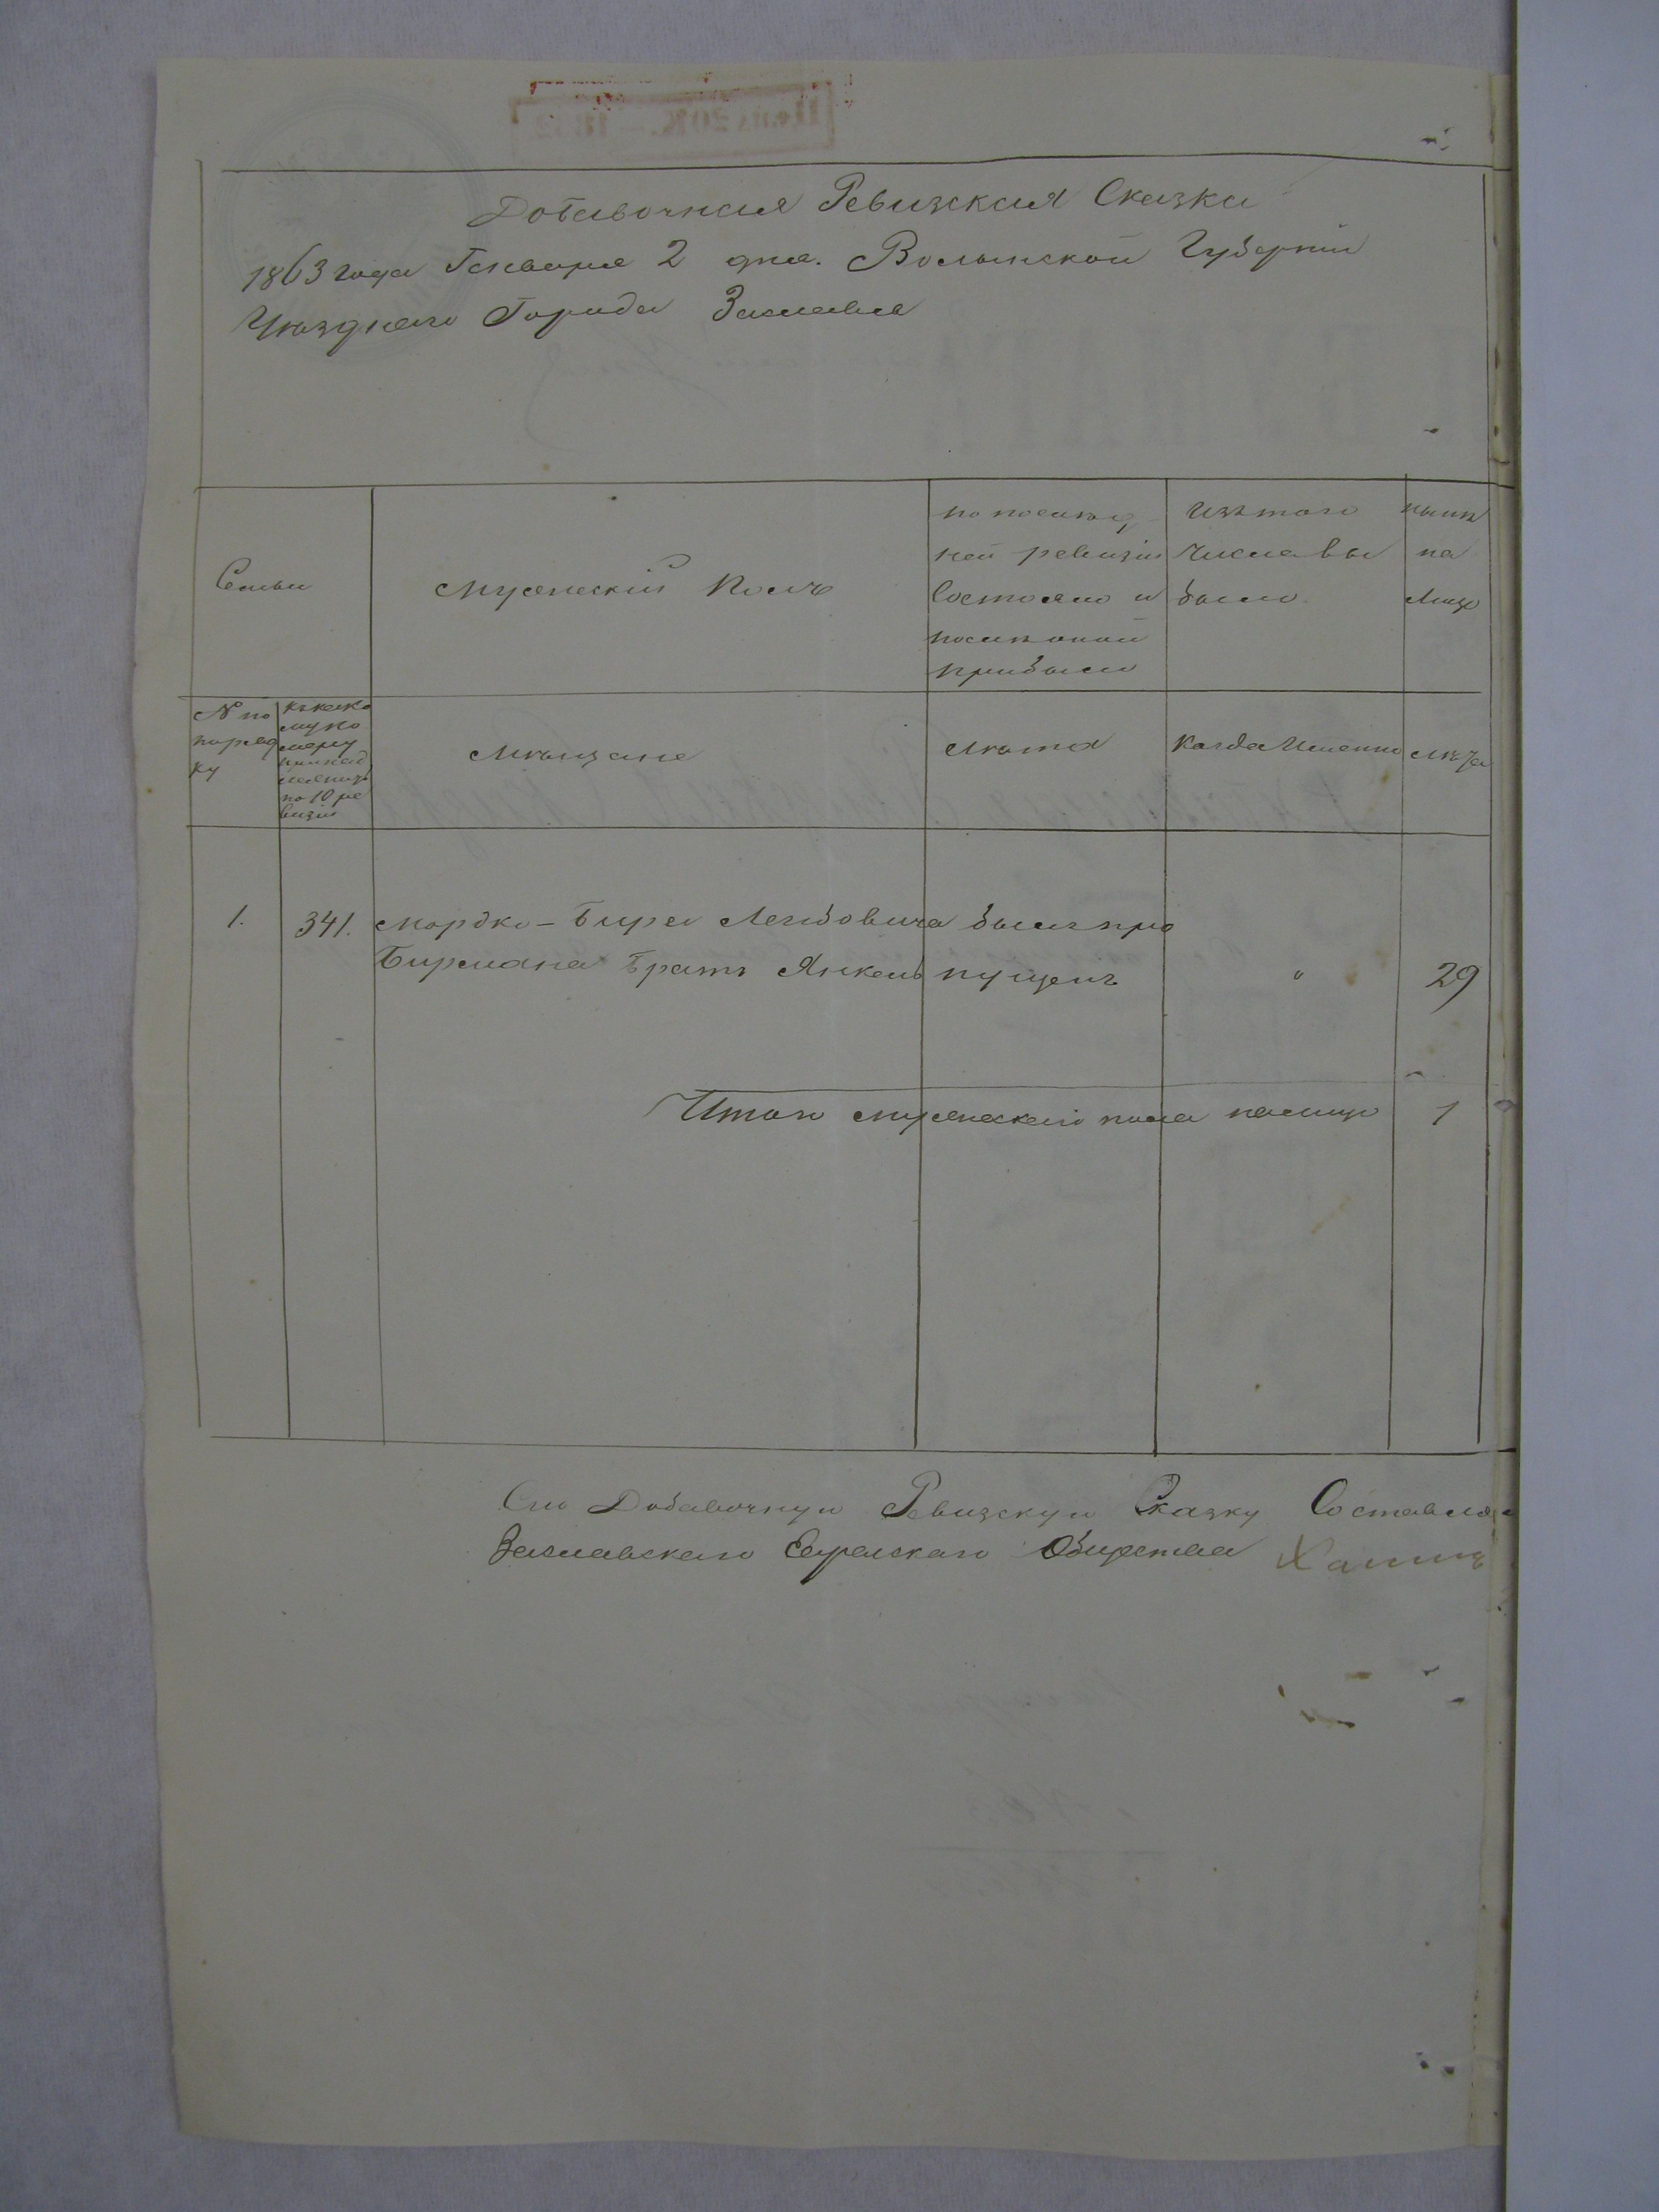 Добавочная Ревизская Сказка
1863 года Генваря 2 дня. Волынской Губернiи
Уезднаго Города Заславля
Семьи
Мужескiй Полъ
по послед
ней ревизiи
состояло и
после оной
прибыло
Изъ того
числа вы
было.
ныне
на
лицо
№ по
поряд
ку
къ како
му но
меру
принад
лежитъ
по 10 ре
визiи
Мещане
Лета
Когда Именно
Лета
1.
341.
Мордко-Бира Лейбовича былъ про
Бирмана Братъ Янкель пущенъ
"
29
Итого мужескаго пола налицо
1
Сiю Добавочную Ревизскую Сказку Составля
Заславскаго Еврейскаго Общества